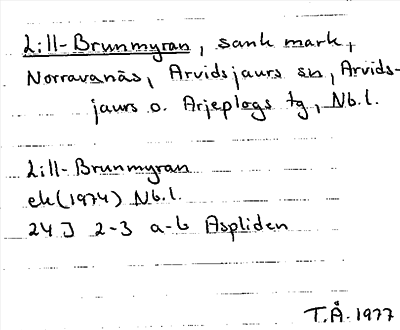 Lill-Brunmyran, sank mark,
Norravanäs, Arvidsjaurs sn, Arvids-
jaurs o. Arjeplogs tg, Nb.l.
Lill-Brunmyran
ek (1974) Nb.l.
24J 2-3 a-b Aspliden
T.Å. 1977